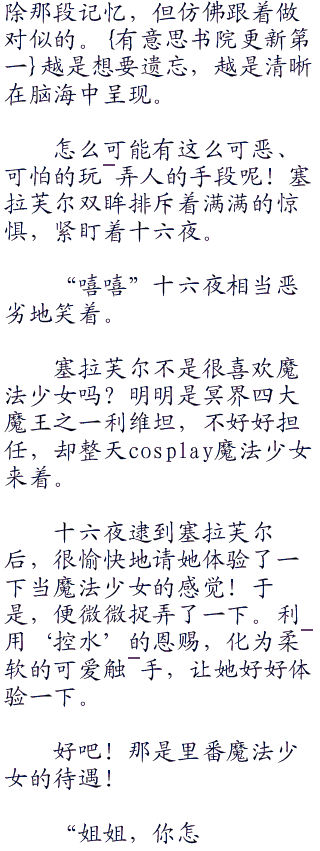 除那段记忆，但仿佛跟着做
对似的。{有意思书院更新第
一}越是想要遗忘，越是清晰
在脑海中呈现。
怎么可能有这么可恶、
可怕的玩¯弄人的手段呢！塞
拉芙尔双眸排斥着满满的惊
惧，紧盯着十六夜。
“嘻嘻”十六夜相当恶
劣地笑着。
塞拉芙尔不是很喜欢魔
法少女吗？明明是冥界四大
魔王之一利维坦，不好好担
任，却整天cosplay魔法少女
来着。
十六夜逮到塞拉芙尔
后，很愉快地请她体验了一
下当魔法少女的感觉！于
是，便微微捉弄了一下。利
用‘控水’的恩赐，化为柔¯
软的可爱触¯手，让她好好体
验一下。
好吧！那是里番魔法少
女的待遇！
“姐姐，你怎